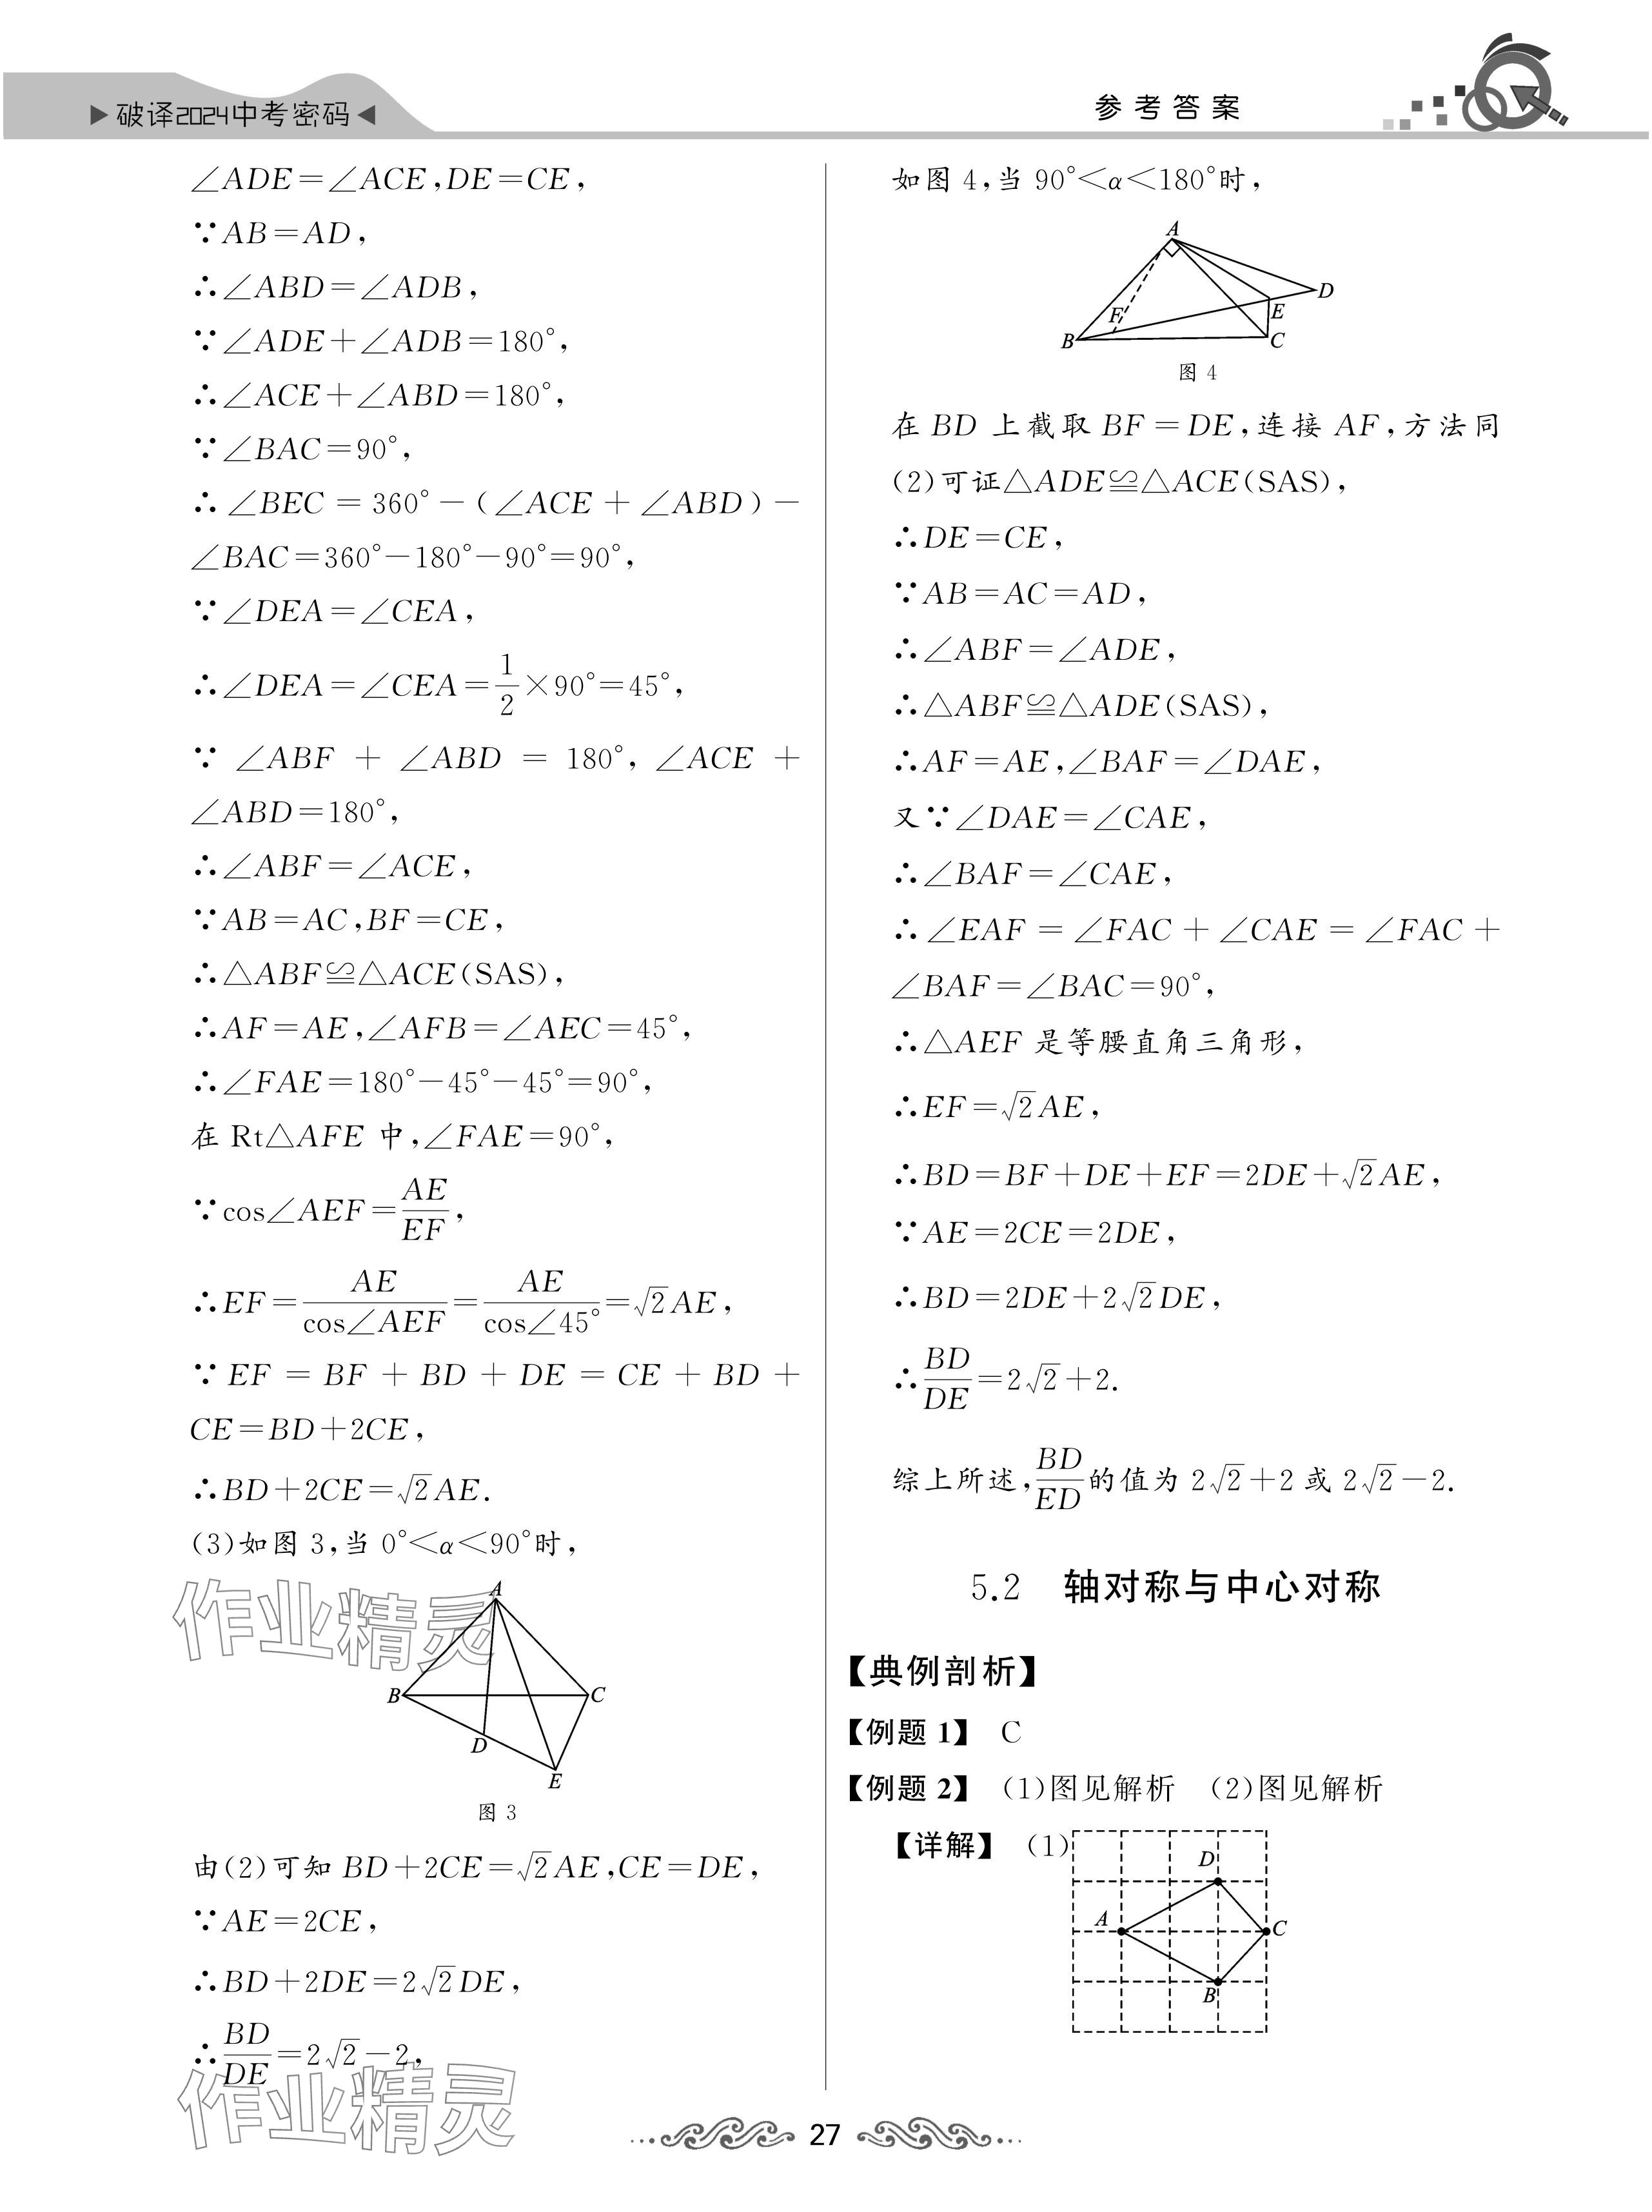 ▶破译2024中考密码◀
参考答案
∠ADE=∠ACE,DE=CE,
∵AB=AD,
∴∠ABD=∠ADB,
∵∠ADE+∠ADB=180°,
∴∠ACE+∠ABD=180°,
∵∠BAC=90°,
∴∠BEC=360°-(∠ACE+∠ABD)-
∠BAC=360°-180°-90°=90°,
∵∠DEA=∠CEA,
∴∠DEA=∠CEA=1/2×90°=45°,
∵∠ABF+∠ABD=180°,∠ACE+
∠ABD=180°,
∴∠ABF=∠ACE,
∵AB=AC,BF=CE,
∴△ABF≌△ACE(SAS),
∴AF=AE,∠AFB=∠AEC=45°,
∴∠FAE=180°-45°-45°=90°,
在Rt△AFE中,∠FAE=90°,
∵cos∠AEF=AE/EF,
∴EF=AE/cos∠AEF=AE/cos∠45°=√2AE,
∵EF=BF+BD+DE=CE+BD+
CE=BD+2CE,
∴BD+2CE=√2AE.
(3)如图3,当0°<α<90°时,
A
B
C
D
E
图3
由(2)可知BD+2CE=√2AE,CE=DE,
∵AE=2CE,
∴BD+2DE=2√2DE,
∴BD/DE=2√2-2,
如图4,当90°<α<180°时,
A
D
F
E
B
C
图4
在BD上截取BF=DE,连接AF,方法同
(2)可证△ADE≌△ACE(SAS),
∴DE=CE,
∵AB=AC=AD,
∴∠ABF=∠ADE,
∴△ABF≌△ADE(SAS),
∴AF=AE,∠BAF=∠DAE,
又∵∠DAE=∠CAE,
∴∠BAF=∠CAE,
∴∠EAF=∠FAC+∠CAE=∠FAC+
∠BAF=∠BAC=90°,
∴△AEF是等腰直角三角形,
∴EF=√2AE,
∴BD=BF+DE+EF=2DE+√2AE,
∵AE=2CE=2DE,
∴BD=2DE+2√2DE,
∴BD/DE=2√2+2.
综上所述,BD/ED的值为2√2+2或2√2-2.
5.2 轴对称与中心对称
【典例剖析】
【例题1】 C
【例题2】 (1)图见解析 (2)图见解析
【详解】 (1)
D
A
C
B
作业精灵
作业精灵
27